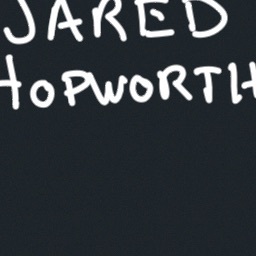 JARED
HOPWORTH